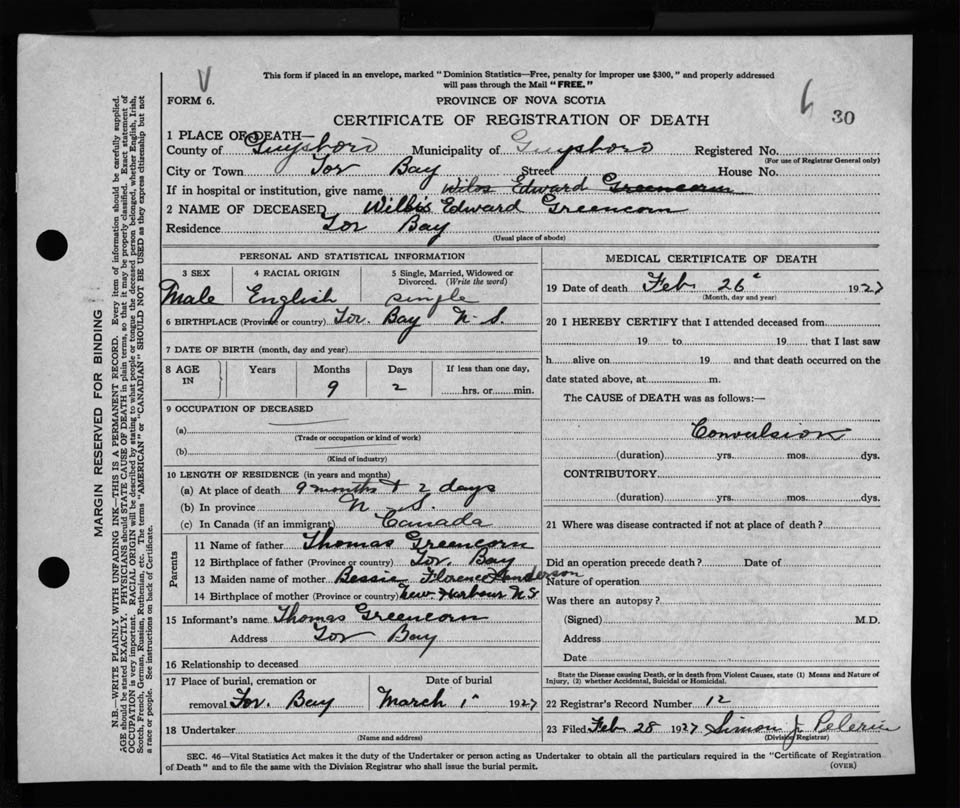 This form if placed in an envelope, marked "Dominion Statistics—Free, penalty for improper use $300," and properly addressed
will pass through the Mail "FREE."
FORM 6.
PROVINCE OF NOVA SCOTIA
30
CERTIFICATE OF REGISTRATION OF DEATH
1 PLACE OF DEATH—
County of Guysboro Municipality of Guysboro Registered No.
(For use of Registrar General only)
City or Town Tor Bay Street House No.
If in hospital or institution, give name Wilos Edward Greencorn
2 NAME OF DECEASED Willis Edward Greencorn
Residence Tor Bay
(Usual place of abode)
PERSONAL AND STATISTICAL INFORMATION
3 SEX
Male
4 RACIAL ORIGIN
English
5 Single, Married, Widowed or
Divorced. (Write the word)
single
6 BIRTHPLACE (Province or country) Tor. Bay N. S.
7 DATE OF BIRTH (month, day and year)
8 AGE
IN
Years
Months
9
Days
2
If less than one day,
hrs. or min.
9 OCCUPATION OF DECEASED
(a)
(Trade or occupation or kind of work)
(b)
(Kind of industry)
10 LENGTH OF RESIDENCE (in years and months)
(a) At place of death 9 months + 2 days
(b) In province N. S.
(c) In Canada (if an immigrant) Canada
Parents
11 Name of father Thomas Greencorn
12 Birthplace of father (Province or country) Tor. Bay
13 Maiden name of mother Bessie Florence Henderson
14 Birthplace of mother (Province or country) New Harbour N.S
15 Informant's name Thomas Greencorn
Address Tor Bay
16 Relationship to deceased
17 Place of burial, cremation or
removal Tor. Bay
Date of burial
March 1 1927
18 Undertaker
(Name and address)
MEDICAL CERTIFICATE OF DEATH
19 Date of death Feb 26 1927
(Month, day and year)
20 I HEREBY CERTIFY that I attended deceased from
19 to 19 that I last saw
h alive on 19 and that death occurred on the
date stated above, at m.
The CAUSE of DEATH was as follows:—
Convulsion
(duration) yrs. mos. dys.
CONTRIBUTORY.
(duration) yrs. mos. dys.
21 Where was disease contracted if not at place of death?
Did an operation precede death? Date of
Nature of operation
Was there an autopsy?
(Signed) M.D.
Address
Date
State the Disease causing Death, or in death from Violent Causes, state (1) Means and Nature of
Injury, (2) whether Accidental, Suicidal or Homicidal.
22 Registrar's Record Number 12
23 Filed Feb 28 1927 Simon J Pelerin
(Division Registrar)
SEC. 46—Vital Statistics Act makes it the duty of the Undertaker or person acting as Undertaker to obtain all the particulars required in the "Certificate of Registration
of Death" and to file the same with the Division Registrar who shall issue the burial permit.
(OVER)
MARGIN RESERVED FOR BINDING
N.B.—WRITE PLAINLY WITH UNFADING INK—THIS IS A PERMANENT RECORD. Every item of information should be carefully supplied.
AGE should be stated EXACTLY. PHYSICIANS should STATE CAUSE OF DEATH in plain terms, so that it may be properly classified. Exact statement of
OCCUPATION is very important. RACIAL ORIGIN will be described by stating to what people or tongue the deceased person belonged, whether English, Irish,
Scotch, French, German, Russian, Ruthenian, etc. The terms "AMERICAN" or "CANADIAN" SHOULD NOT BE USED as they express citizenship but not
a race or people. See instructions on back of Certificate.